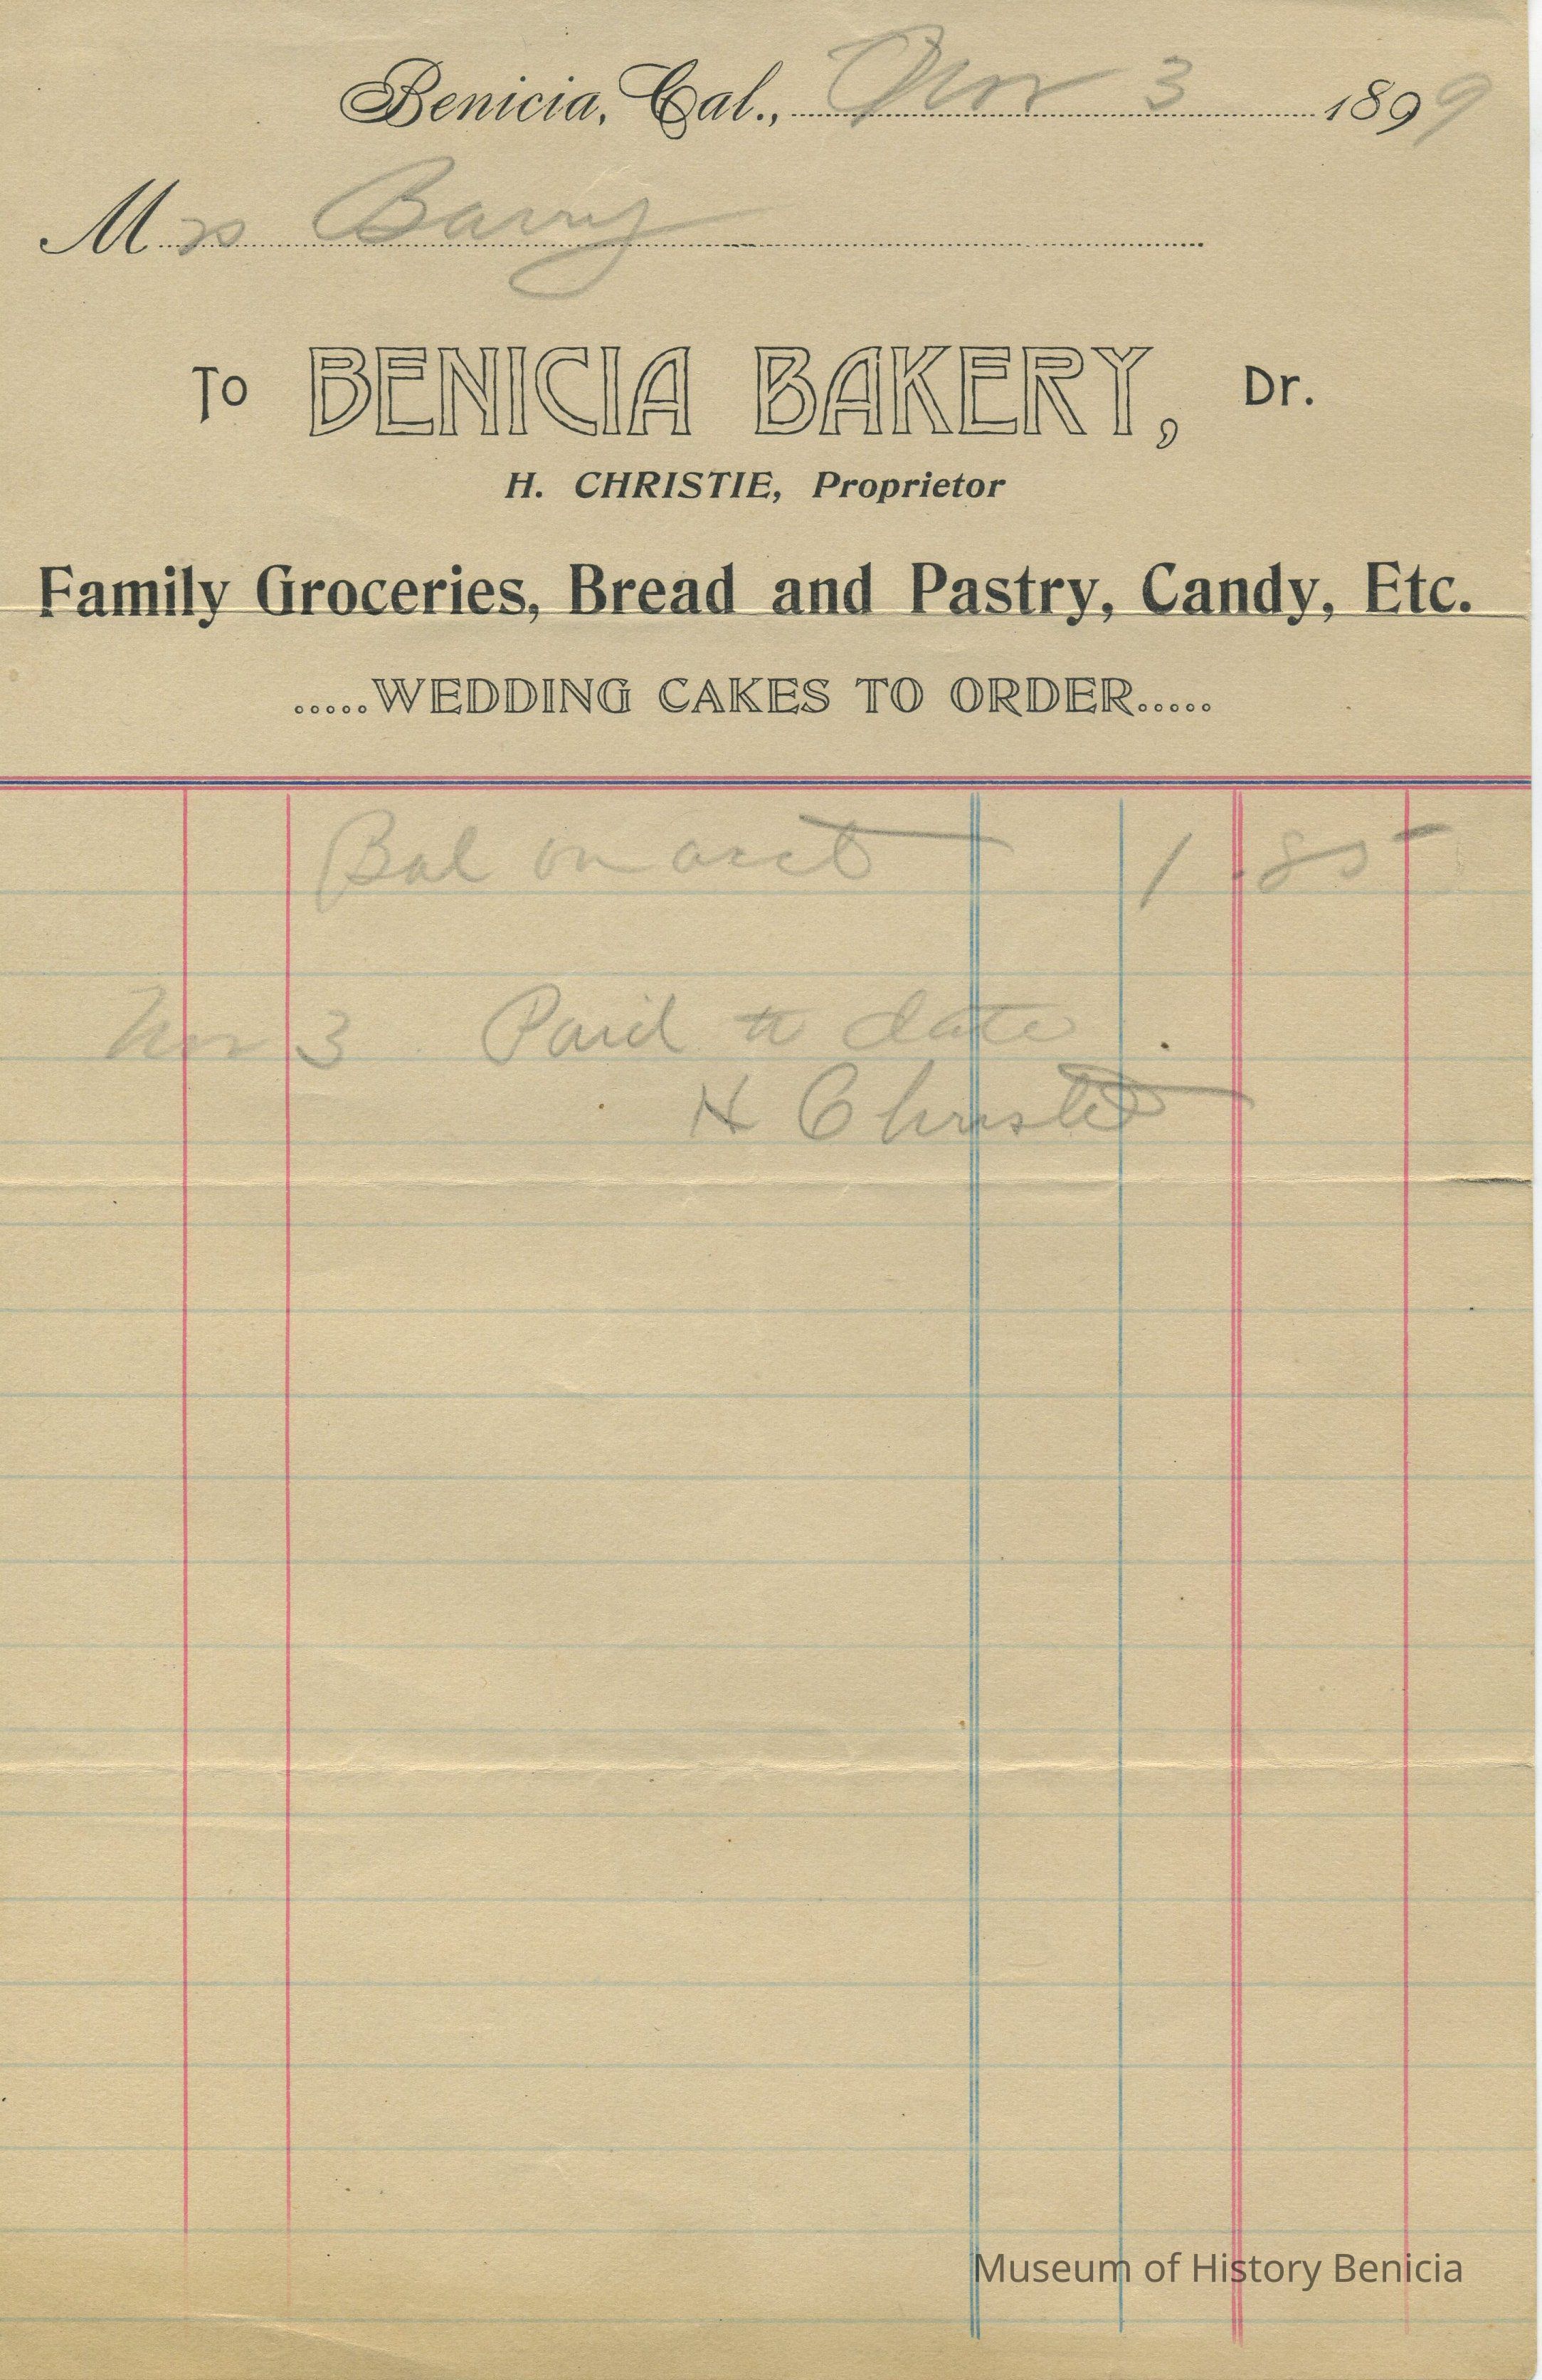 Benicia, Cal., Nov 3 1899
Mrs Barry
To BENICIA BAKERY, Dr.
H. CHRISTIE, Proprietor
Family Groceries, Bread and Pastry, Candy, Etc.
.....WEDDING CAKES TO ORDER.....
Bal on acct 1.85
Nov 3 Paid to date
H Christie
Museum of History Benicia